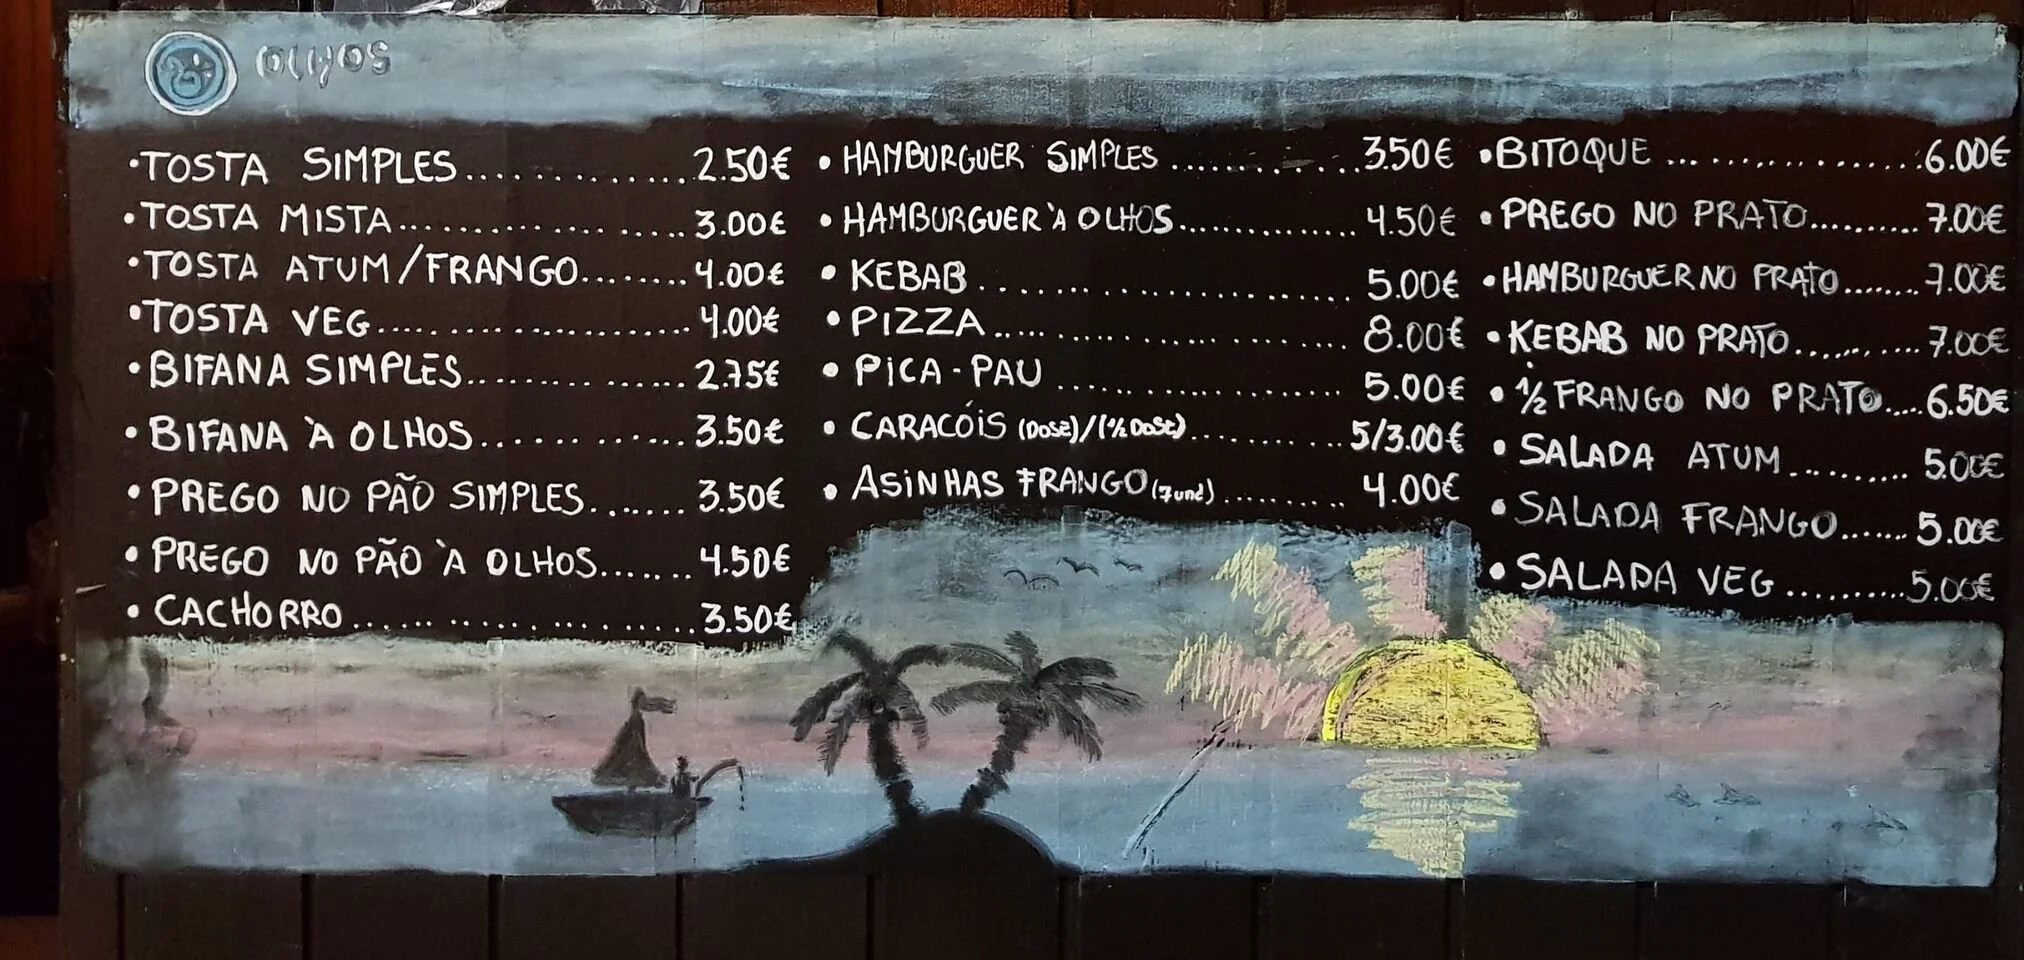 OLHOS
•TOSTA SIMPLES.............2.50€
•TOSTA MISTA..................3.00€
•TOSTA ATUM/FRANGO........4.00€
•TOSTA VEG....................4.00€
•BIFANA SIMPLES...............2.75€
•BIFANA À OLHOS..............3.50€
•PREGO NO PÃO SIMPLES.......3.50€
•PREGO NO PÃO À OLHOS.......4.50€
•CACHORRO....................3.50€
•HAMBURGUER SIMPLES ............3.50€
•HAMBURGUER À OLHOS............4.50€
•KEBAB........................5.00€
•PIZZA........................8.00€
•PICA-PAU ....................5.00€
•CARACÓIS (DOSE)/(1/2 DOSE)..........5/3.00€
•ASINHAS FRANGO (7und)..........4.00€
•BITOQUE ................6.00€
•PREGO NO PRATO..........7.00€
•HAMBURGUER NO PRATO........7.00€
•KEBAB NO PRATO..........7.00€
•1/2 FRANGO NO PRATO.....6.50€
•SALADA ATUM..........5.00€
•SALADA FRANGO.......5.00€
•SALADA VEG..........5.00€